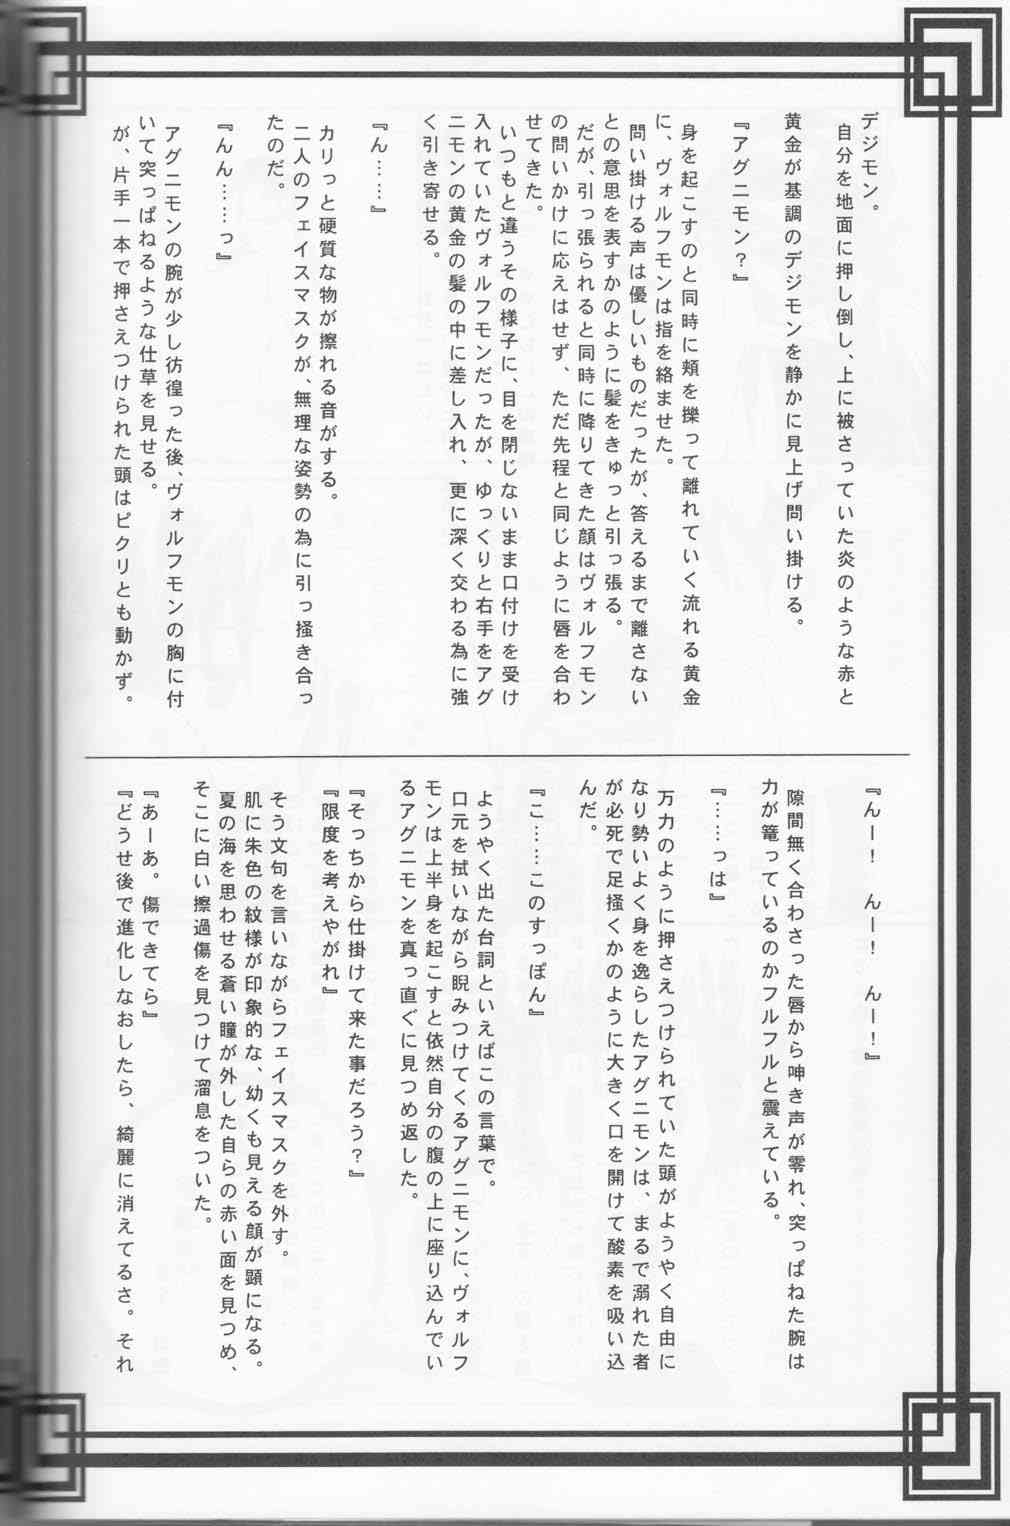 デジモン。
　自分を地面に押し倒し、上に被さっていた炎のような赤と
黄金が基調のデジモンを静かに見上げ問い掛ける。
『アグニモン？』
　身を起こすのと同時に頬を擽って離れていく流れる黄金
に、ヴォルフモンは指を絡ませた。
　問い掛ける声は優しいものだったが、答えるまで離さない
との意思を表すかのように髪をきゅっと引っ張る。
　だが、引っ張られると同時に降りてきた顔はヴォルフモン
の問いかけに応えはせず、ただ先程と同じように唇を合わ
せてきた。
　いつもと違うその様子に、目を閉じないまま口付けを受け
入れていたヴォルフモンだったが、ゆっくりと右手をアグ
ニモンの黄金の髪の中に差し入れ、更に深く交わる為に強
く引き寄せる。
『ん……』
　カリっと硬質な物が擦れる音がする。
　二人のフェイスマスクが、無理な姿勢の為に引っ掻き合っ
たのだ。
『んん……っ』
　アグニモンの腕が少し彷徨った後、ヴォルフモンの胸に付
いて突っぱねるような仕草を見せる。
　が、片手一本で押さえつけられた頭はピクリとも動かず。
『んー！　んー！　んー！』
　隙間無く合わさった唇から呻き声が零れ、突っぱねた腕は
力が篭っているのかフルフルと震えている。
『……っは』
　万力のように押さえつけられていた頭がようやく自由に
なり勢いよく身を逸らしたアグニモンは、まるで溺れた者
が必死で足掻くかのように大きく口を開けて酸素を吸い込
んだ。
『こ……このすっぽん』
　ようやく出た台詞といえばこの言葉で。
　口元を拭いながら睨みつけてくるアグニモンに、ヴォルフ
モンは上半身を起こすと依然自分の腹の上に座り込んでい
るアグニモンを真っ直ぐに見つめ返した。
『そっちから仕掛けて来た事だろう？』
『限度を考えやがれ』
　そう文句を言いながらフェイスマスクを外す。
　肌に朱色の紋様が印象的な、幼くも見える顔が顕になる。
　夏の海を思わせる蒼い瞳が外した自らの赤い面を見つめ、
そこに白い擦過傷を見つけて溜息をついた。
『あーあ。傷できてら』
『どうせ後で進化しなおしたら、綺麗に消えてるさ。それ